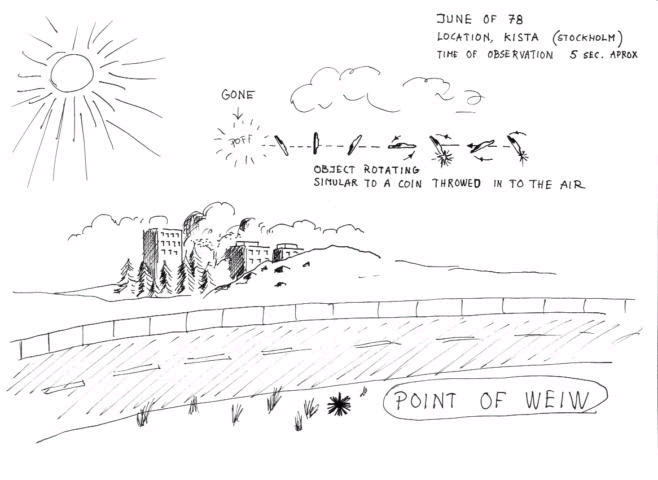 JUNE OF 78
LOCATION, KISTA (STOCKHOLM)
TIME OF OBSERVATION 5 SEC. APROX
GONE
POFF
OBJECT ROTATING
SIMULAR TO A COIN THROWED IN TO THE AIR
POINT OF WEIW